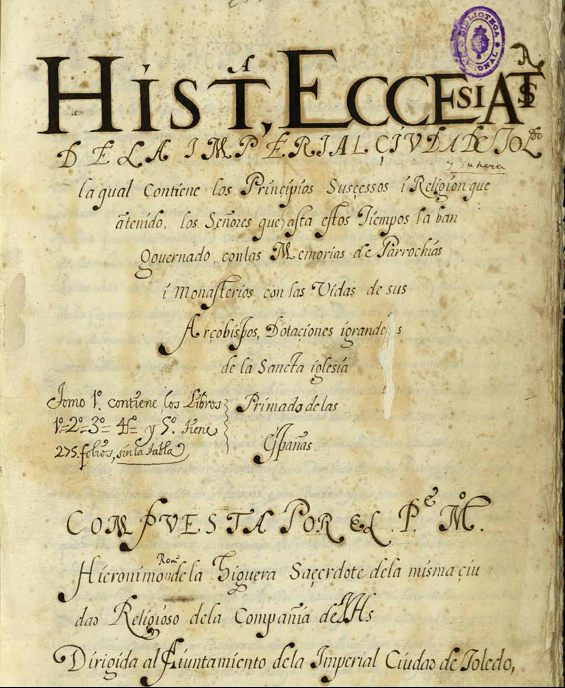 HisT.ª ECCESIAST
DE LA IMPERIAL ÇIVDAD DE TOLdo
y su tierra
la qual Contiene los Principios Susçessos i Religion que
atenido, los Señores que asta estos Tiempos la han
Governado, con las Memorias de Parrochias
i Monasterios con las Vidas de sus
Arcobispos, Dotaçiones i grandes
de la Sancta iglesia
Primado de las
Españas
Tomo 1º. contiene los Libros
1º=2º=3º= 4º= y 5º. tiene
275. folios, sin la tabla
COMPVESTA POR EL P.e M.º
Hieronimo Romde la Higuera Saçerdote de la misma çiu
dad Religioso de la Compañia de IHs
Dirigida al Aiuntamiento de la Imperial Ciudad de Toledo,
BIBLIOTECA NACIONAL